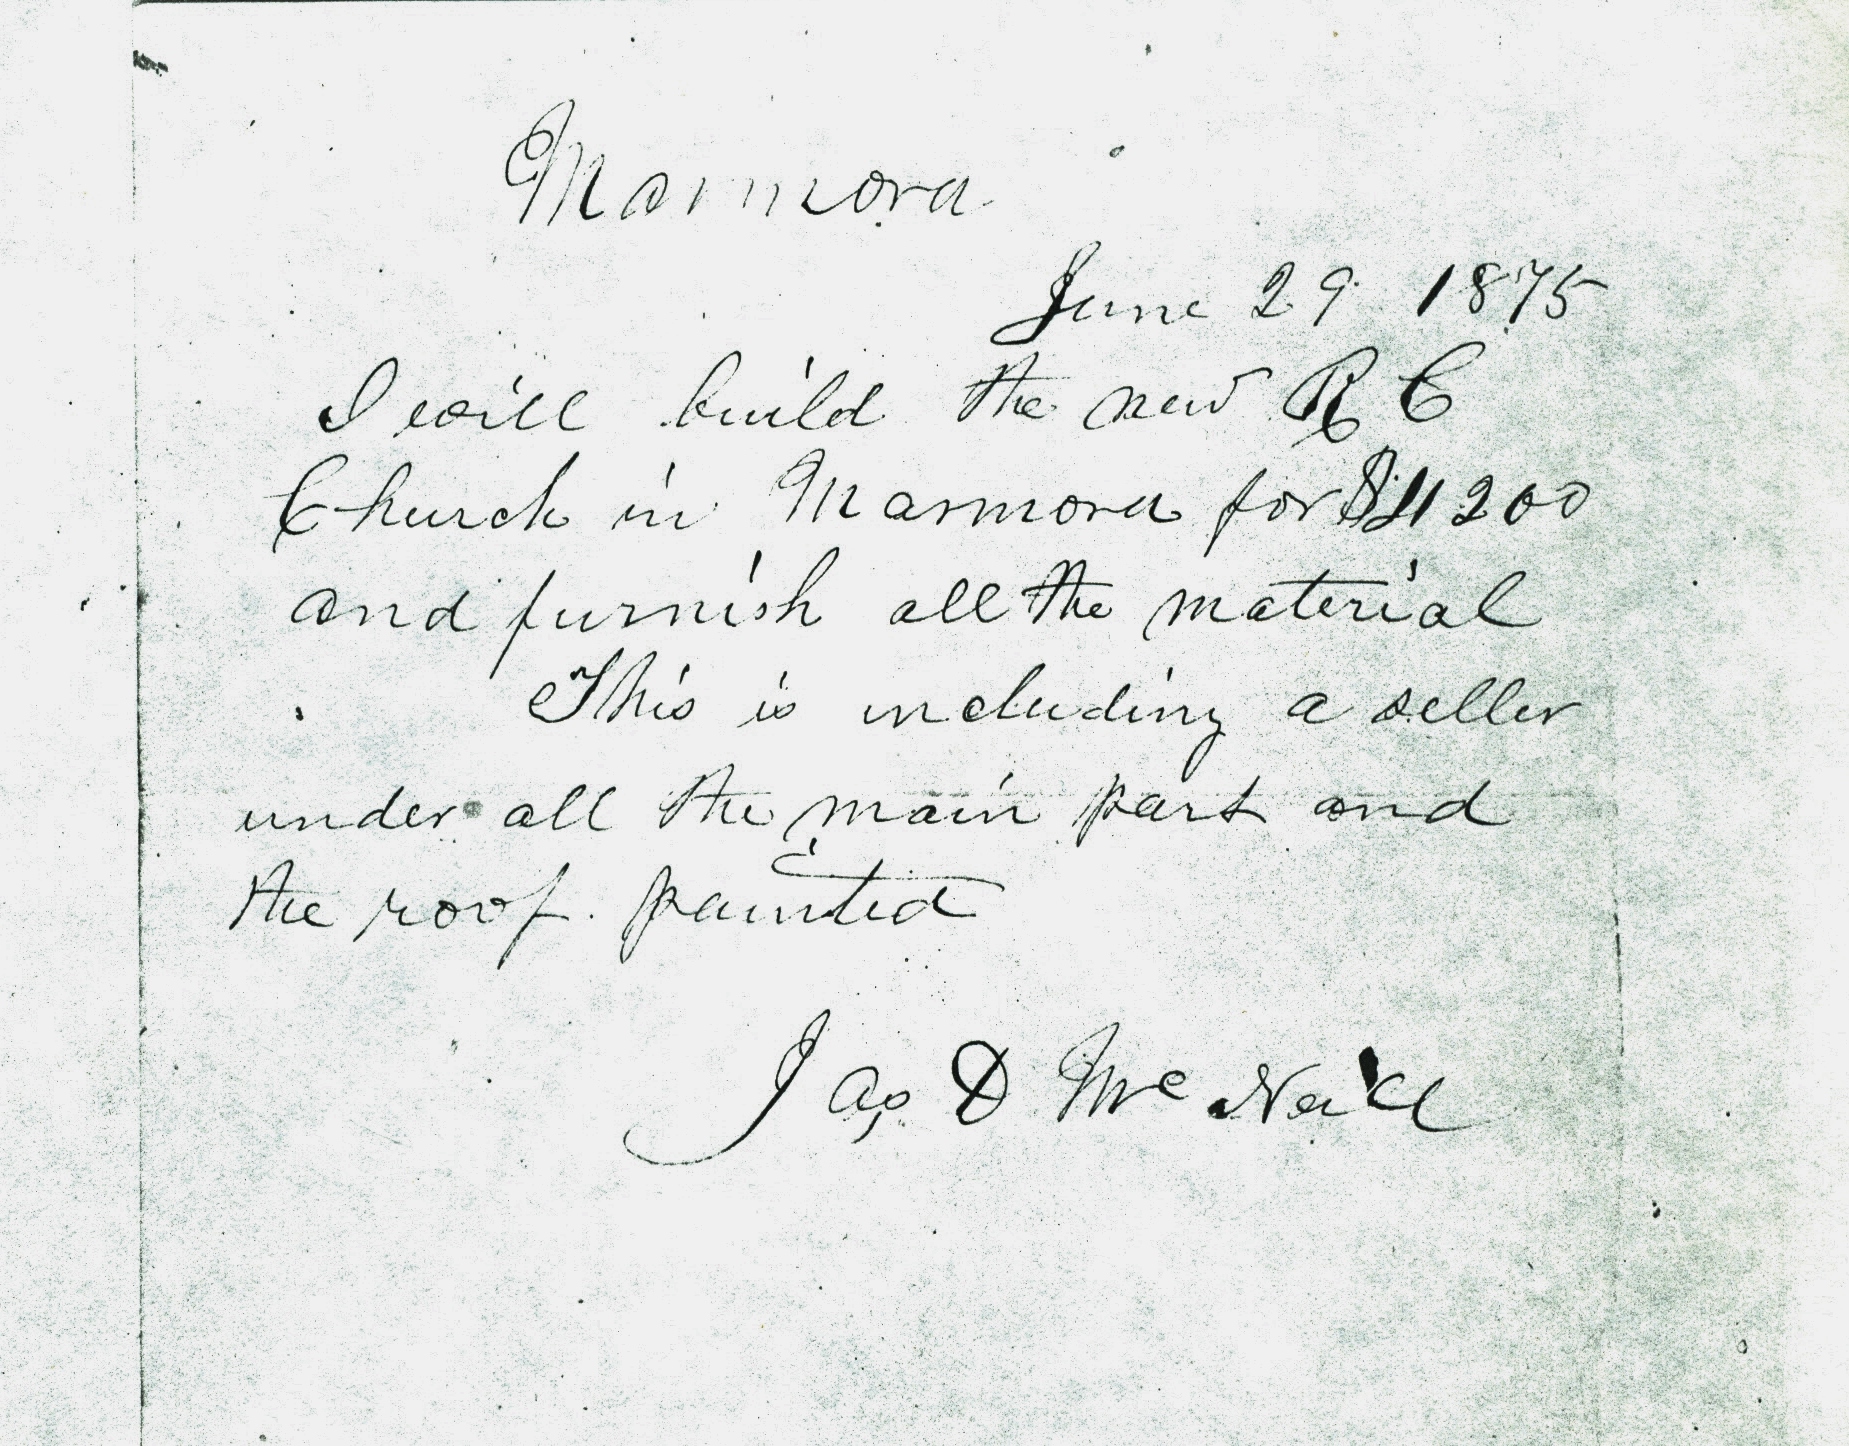 Marmora
June 29 1875
I will build the new R C
Church in Marmora for $4200
and furnish all the material
This is including a seller
under all the main part and
the roof painted
Jas D McNeill